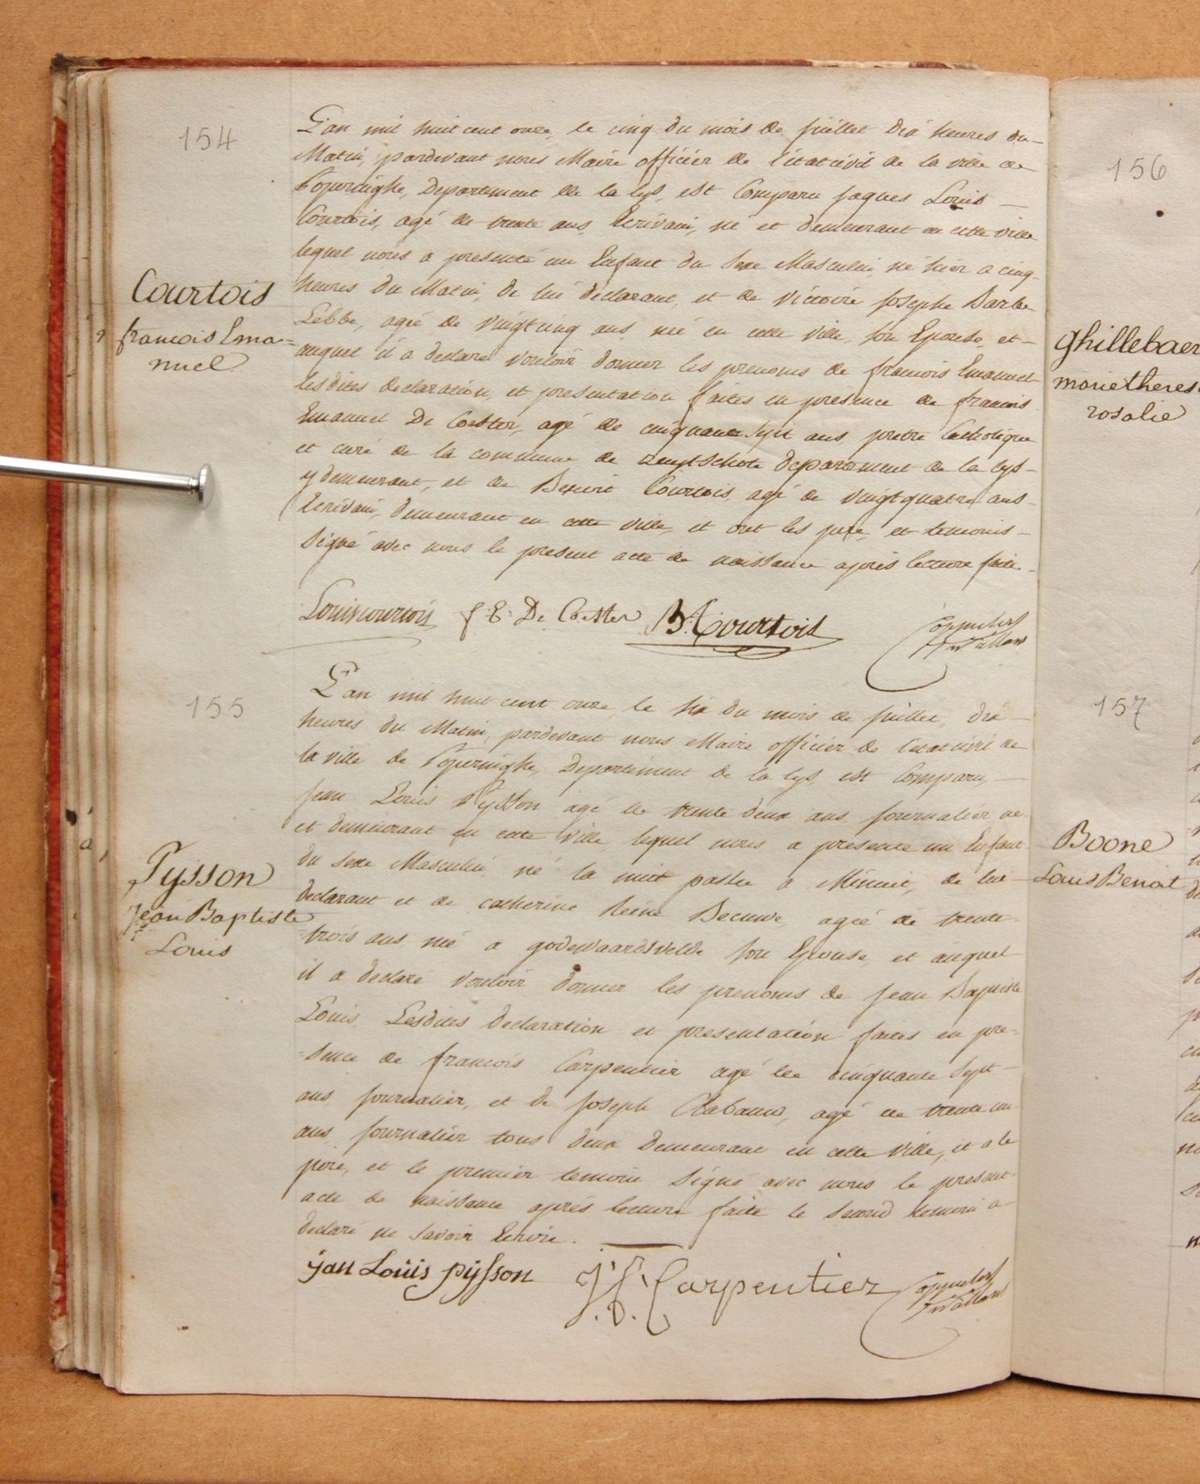 154
L'an mil huit cent onze, le cinq du mois de juillet dix heures du
Matin, pardevant nous Maire officier de l'état civil de la ville de
Poperinghe, Departement de la Lys, est Comparu Jaques Louis
Courtois, agé de trente ans, Ecrivain, né et demeurant en cette ville
lequel nous a presenté un Enfant du Sexe Masculin, né hier a cinq
heures du Matin, de lui declarant, et de Victoire Josephe Barbe
Lebbe, agée de vingt cinq ans, née en cette ville, son Epouse, et
auquel il a declaré vouloir donner les prenoms de francois Emanuel
lesdites declaration, et presentation faites en presence de francois
Emanuel De Coester, agé de cinquante Sept ans, pretre Catholique
et curé de la commune de departement de la Lys
y demeurant, et de Courtois, agé de vingt quatre ans
Ecrivain, demeurant en cette ville, et ont les pere, et temoins
Signé avec nous le present acte de naissance après lecture faite.
Courtois
francois Ema=
nuel
Louis courtois f E. De Coester B. Courtois
155
L'an mil huit cent onze, le Six du mois de juillet, dix
heures du Matin, pardevant nous Maire officier de l'état civil de
la ville de Poperinghe, Departement de la Lys, est Comparu,
Jean Louis Pysson agé de trente deux ans, journalier né
et demeurant en cette Ville, lequel nous a presenté un Enfant
du Sexe Masculin, né la nuit passée a Minuit, de lui
declarant et de catherine Reine Decuwe, agée de trente
trois ans née a godewaersvelde Son Epouse, et auquel
il a declaré vouloir donner les prenoms de Jean Baptiste
Louis Lesdites declaration et presentation faites en pre-
-sence de francois Carpentier agé de cinquante Sept
ans journalier, et de Joseph agé de trente un
ans journalier tous deux demeurant en cette Ville, et a le
pere, et le premier temoin Signé avec nous le present
acte de naissance après lecture faite le Second temoin a
declaré ne Savoir Ecrire.
Pysson
Jean Baptiste
Louis
jan Louis pysson J. F. Carpentier
156
ghillebaer
marie theres
rosalie
157
Boone
Louis Benoit